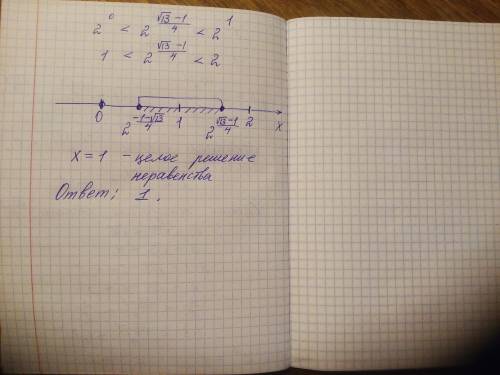 2⁰ < 2^((√13 −1)/4) < 2¹
1 < 2^((√13 −1)/4) < 2
0 2^((−1−√13)/4) 1 2^((√13−1)/4) 2 x
x = 1 – целое решение
неравенства
Ответ: 1.